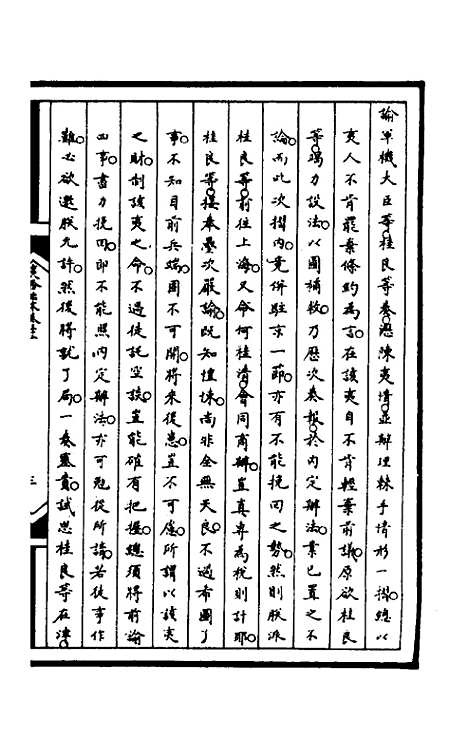 諭軍機大臣等桂良等奏瀝陳夷情並辦理棘手情形一摺總以
夷人不肯罷棄條約為言在該夷自不肯輕棄前議原欲桂良
等竭力設法以圖補救乃歷次奏報於內定辦法業已置之不
論而此次摺內竟併駐京一節亦有不能挽回之勢然則朕派
桂良等前往上海又令何桂清會同商辦豈真專為稅則計耶
桂良等接奉疊次嚴諭既知惶悚尚非全無天良不過希圖了
事不知目前兵端固不可開將來後患豈不可慮所謂以該夷
之財制該夷之命不過徒託空談豈能確有把握總須將前諭
四事盡力挽回即不能照內定辦法亦可免從所請若徒事作
難必欲邀朕允許然後將就了局一奏塞責試思桂良等在津
三